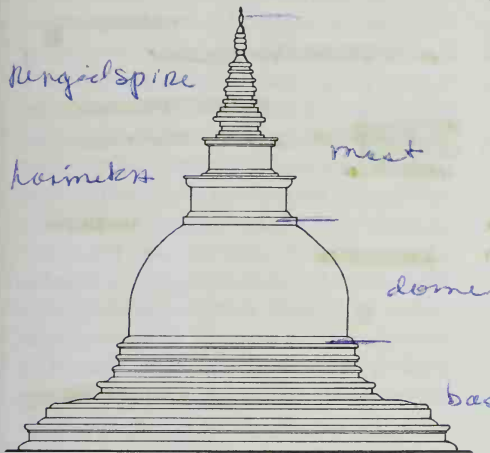 ringed spire
mast
harmika
dome
bas